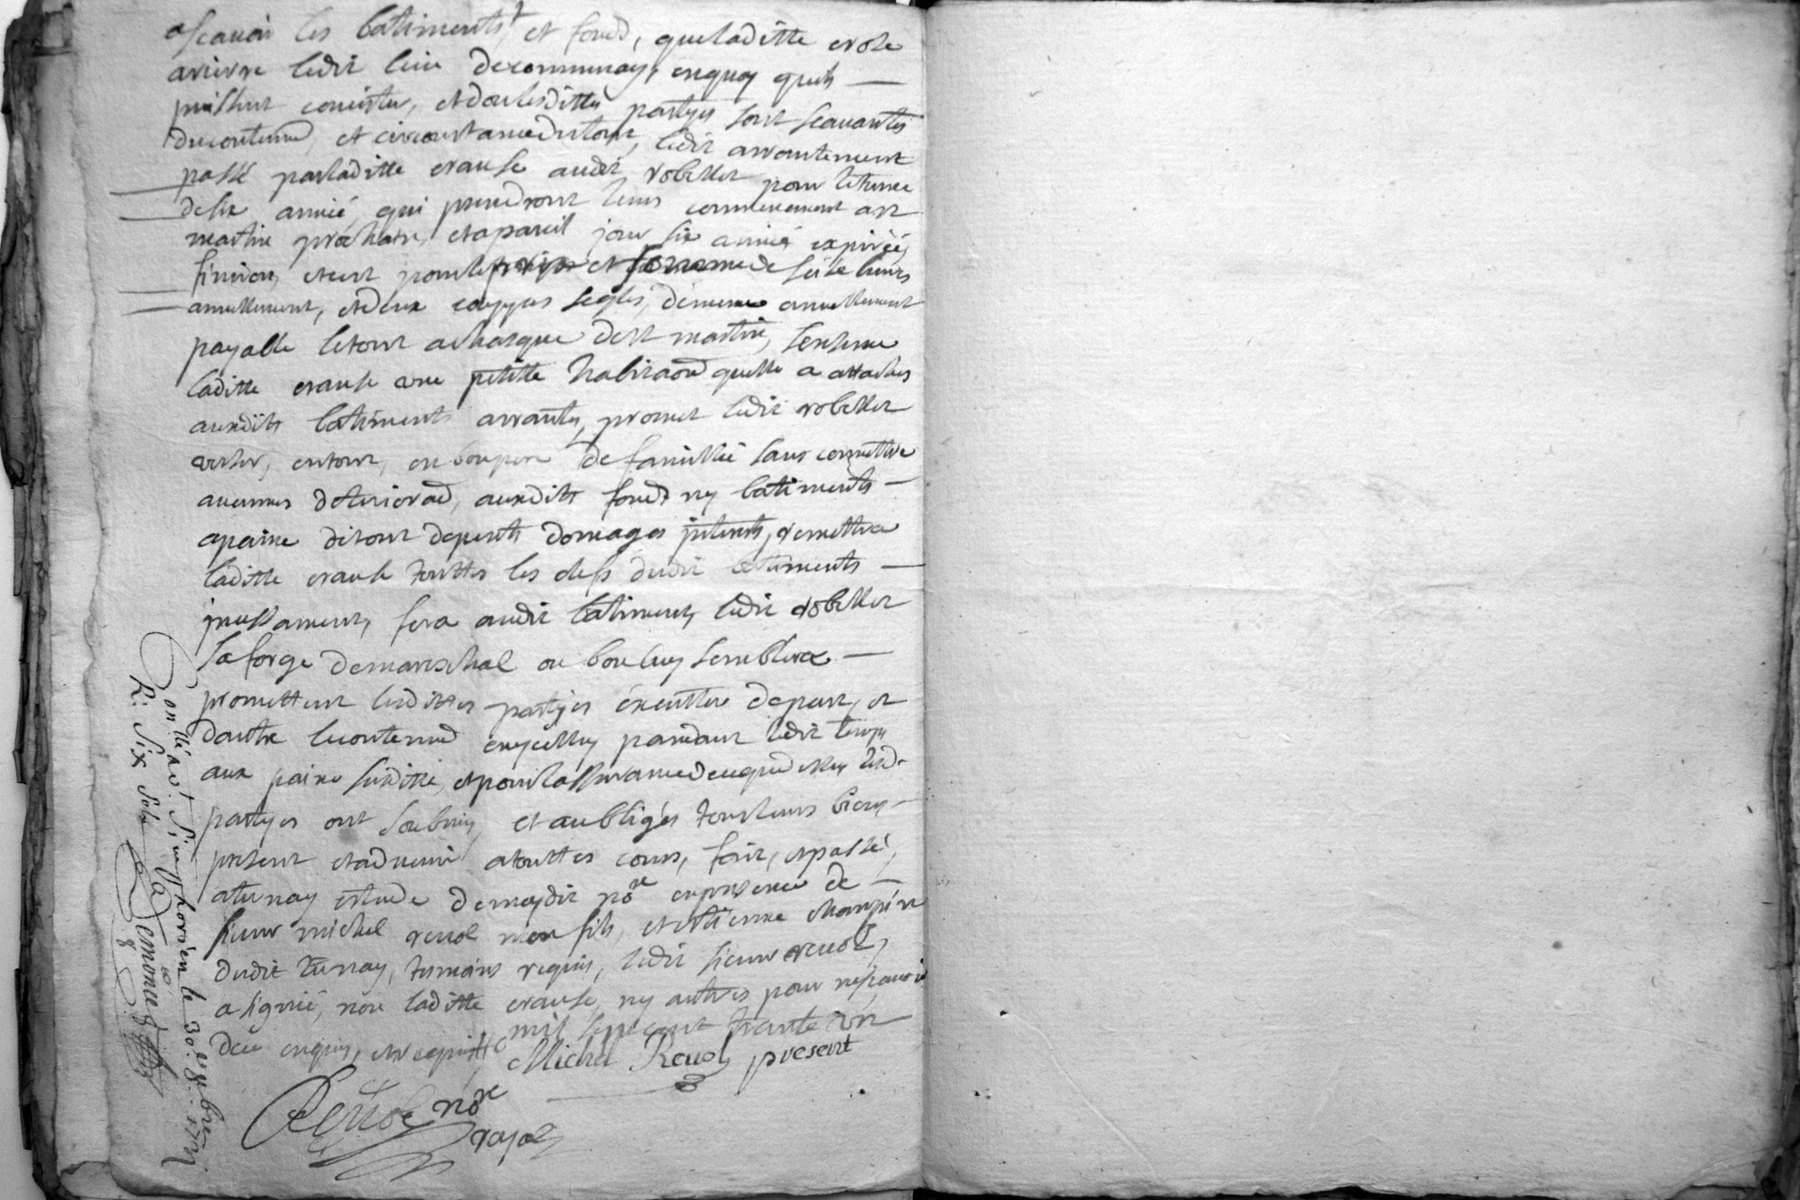 ascavoir les batiments, et fond, queladitte crose
arivre ledit lieu decommunay, enquoy quels
puissent concister, et dont lesdittes partyes sont scavantes
ducontenud, et circonstance dutout, ledit arrantement
passé parladitte crause audit robellet pour leterme
desix année, qui prendront leurs commencement a st
martin prochain, etapareil jour six année expirée,
finiron, etcest pour le prix et somme de seise livres
annuellement, et deux couppes segles, demeure annuellement
payable letout achasque de st martin, senserve
laditte crause une petitte habitaond quelle a attaches
auxdits batiments arrantes, promet ledit robellet
user, entout, en bon pere de famillie sans comettre
aucunes deterioraond, auxdits fonds ny batiments
apaine detout depents domages jnterets, remettra
laditte crause touttes les clefs dudit batiments
jncessament, fera audit batiment, ledit robellet
saforge demareschal ou bon luy semblera
promettent lesdittes partyes exeuttere depart, et
dautre lecontenud enycelluy pandant ledit temps
aux paine susditte, et pour lassurance de ce que dessus lesd.
partyes ont soubmis, et aubligés tous leurs biens
present etadvenir atouttes cours, fait, et passé,
aternay estude demoydit nore enpresence de
sieur michel revol mon fils, et estienne champin
dudit ternay, temoins requis, ledit sieur revol,
a signié, non laditte crause, ny autres pour nesavoir
deu enquis, et requis, le mil sept cent trante un
Michel Revol present
Revol nore
royal
Conllé à St. Simpphorien le 30e 9bre 1731
R: Six sols
Lademonceg